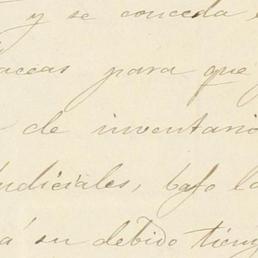 y se conceda
baceas para que
de inventario
judiciales, bajo la
á su debido tiem